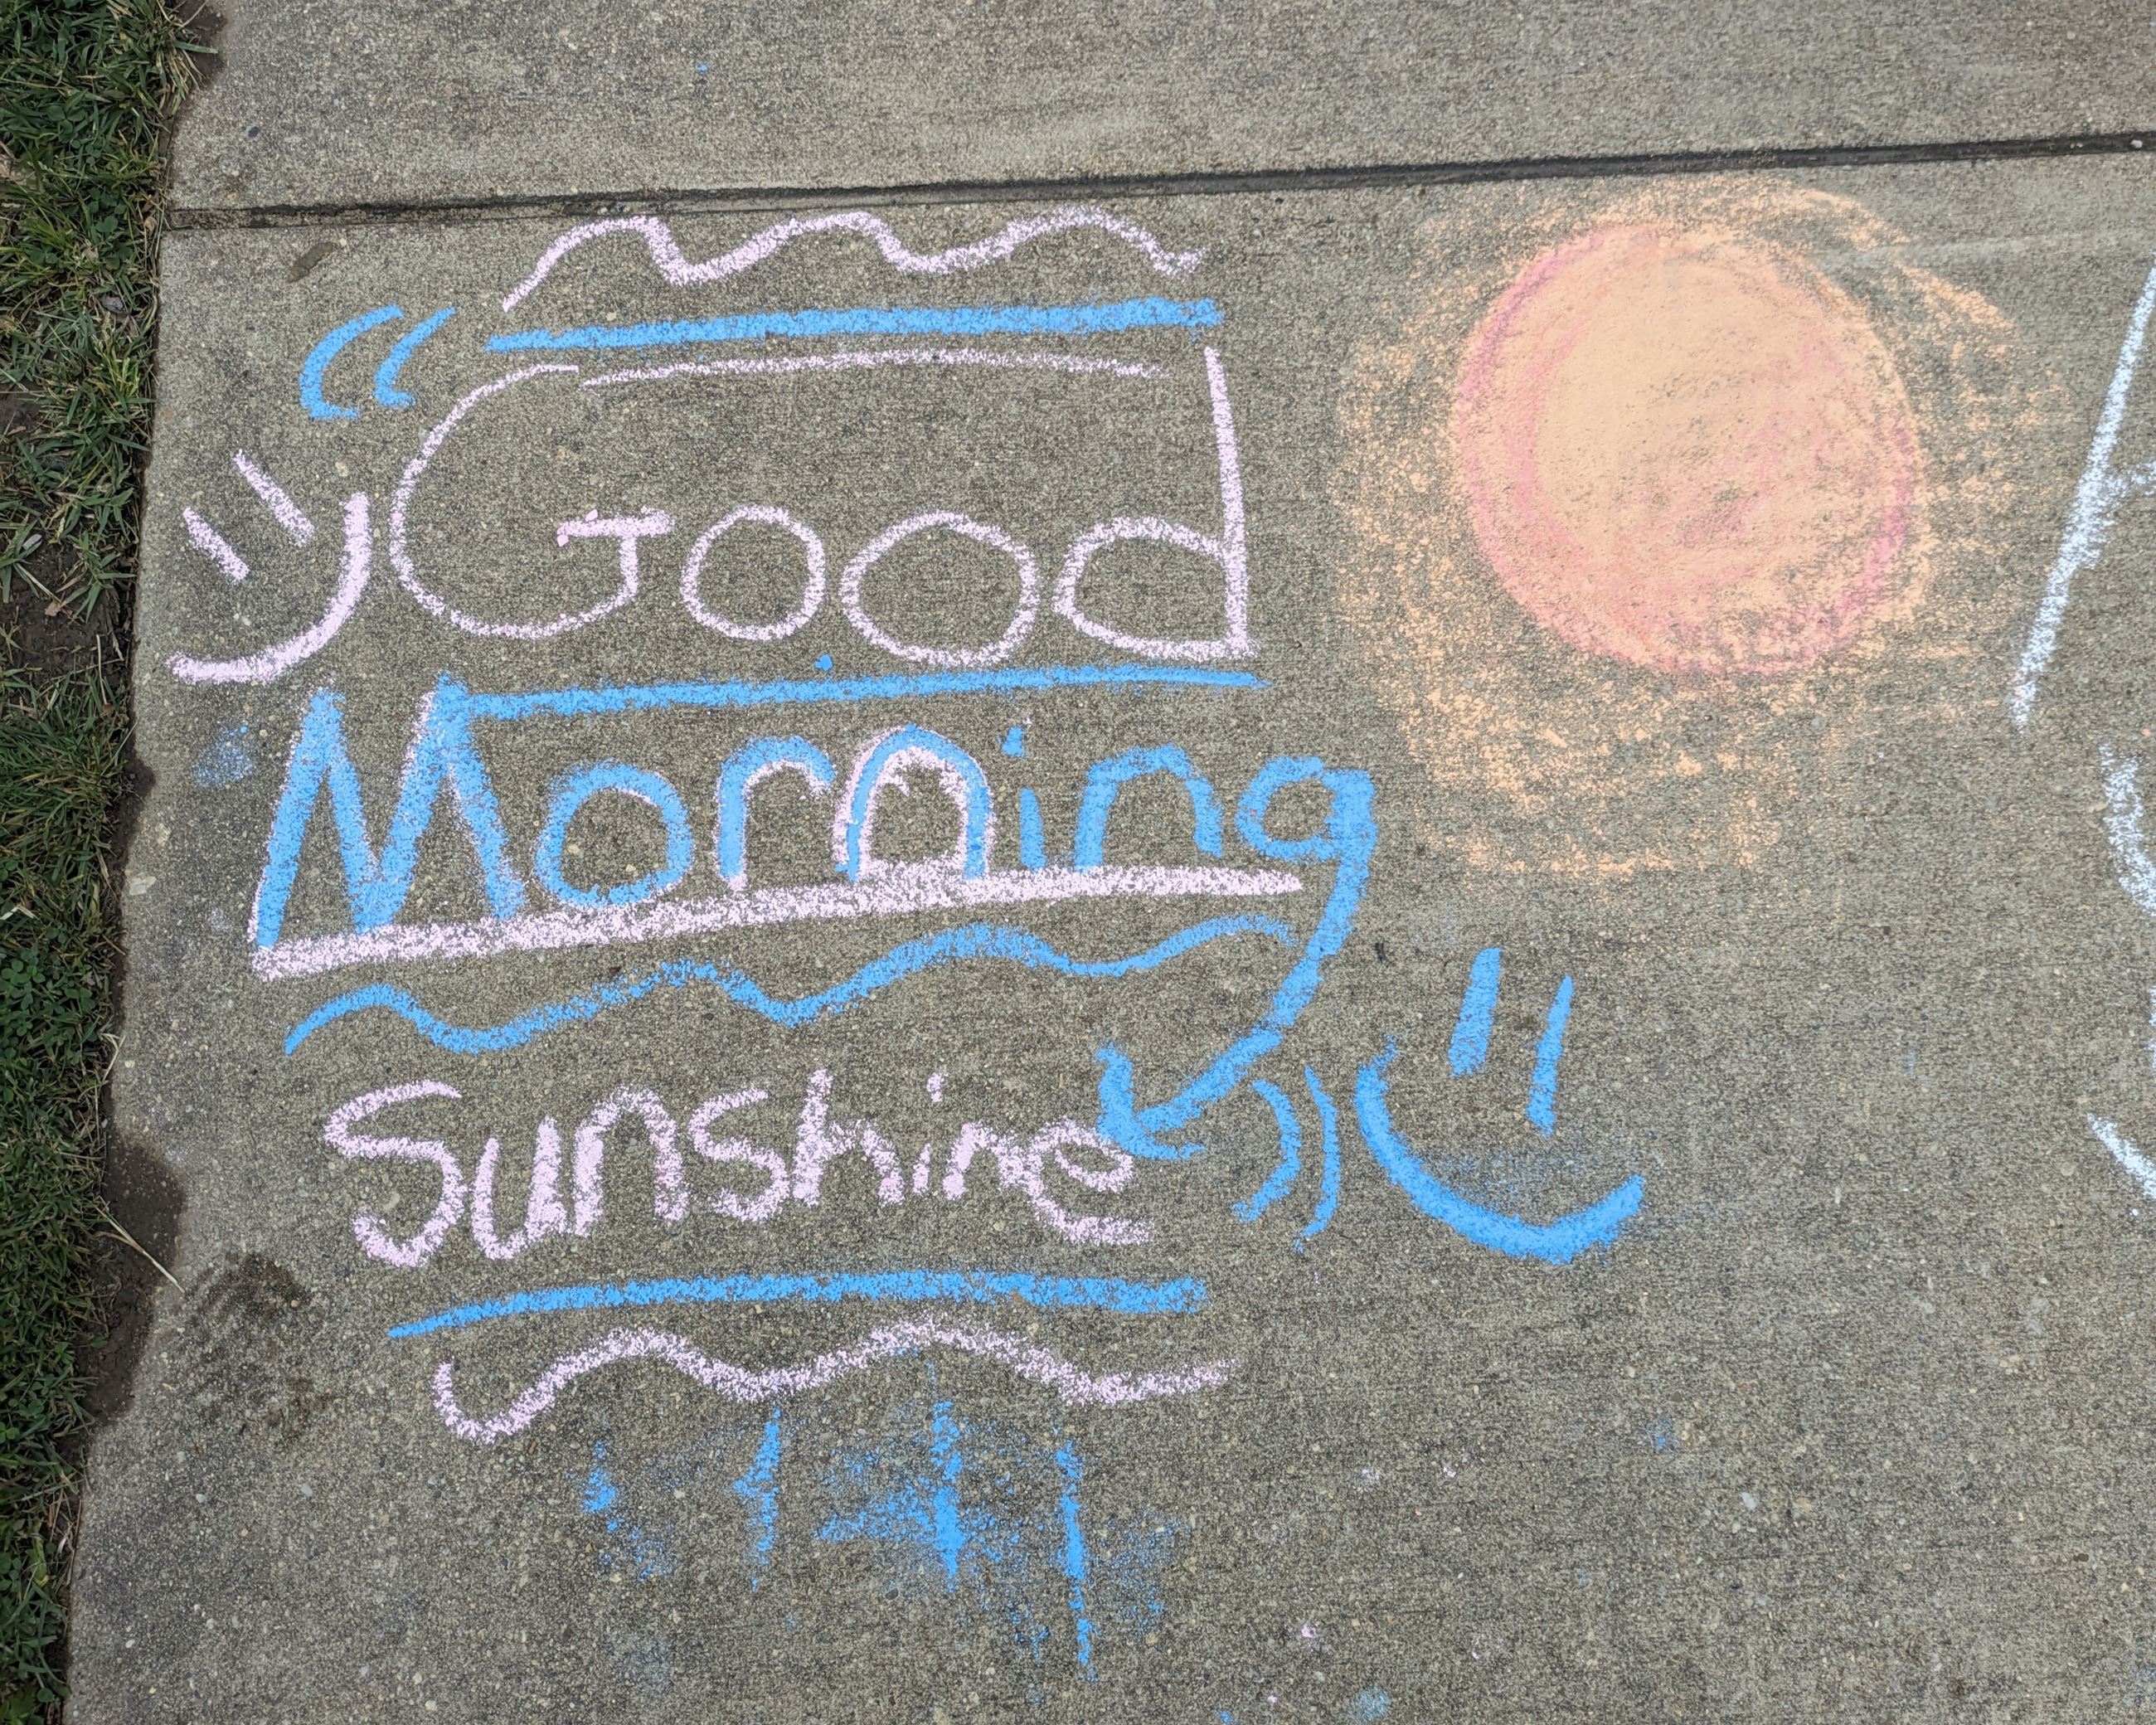 “Good
Morning
Sunshine”